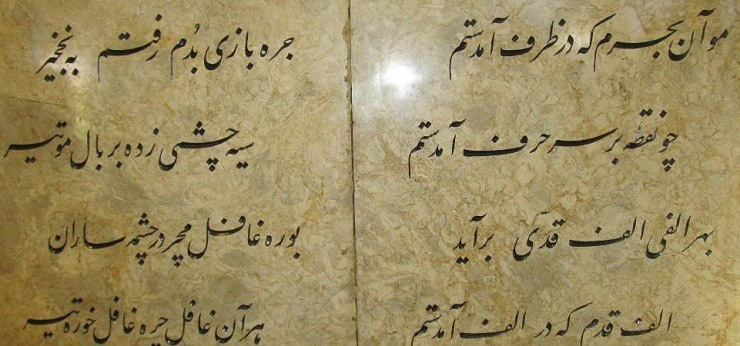 مو آن بحرم که در ظرف آمدستم
چو نقطه بر سر حرف آمدستم
بهر الفی الف قدّی برآید
الف قدم که در الف آمدستم
جره بازی بُدم رفتم به نخجیر
سیه چشمی زده بر بال مو تیر
بوره غافل مچر در چشمه ساران
هرآن غافل چره غافل خوره تیر